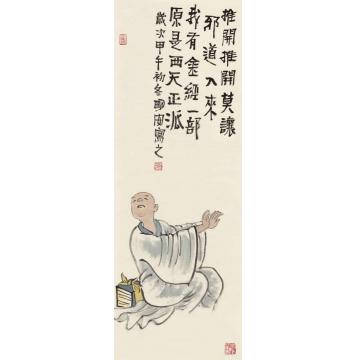 推開推開莫讓
邪道入來
我有金經一部
原是西天正派
歲次甲午初冬
寫之